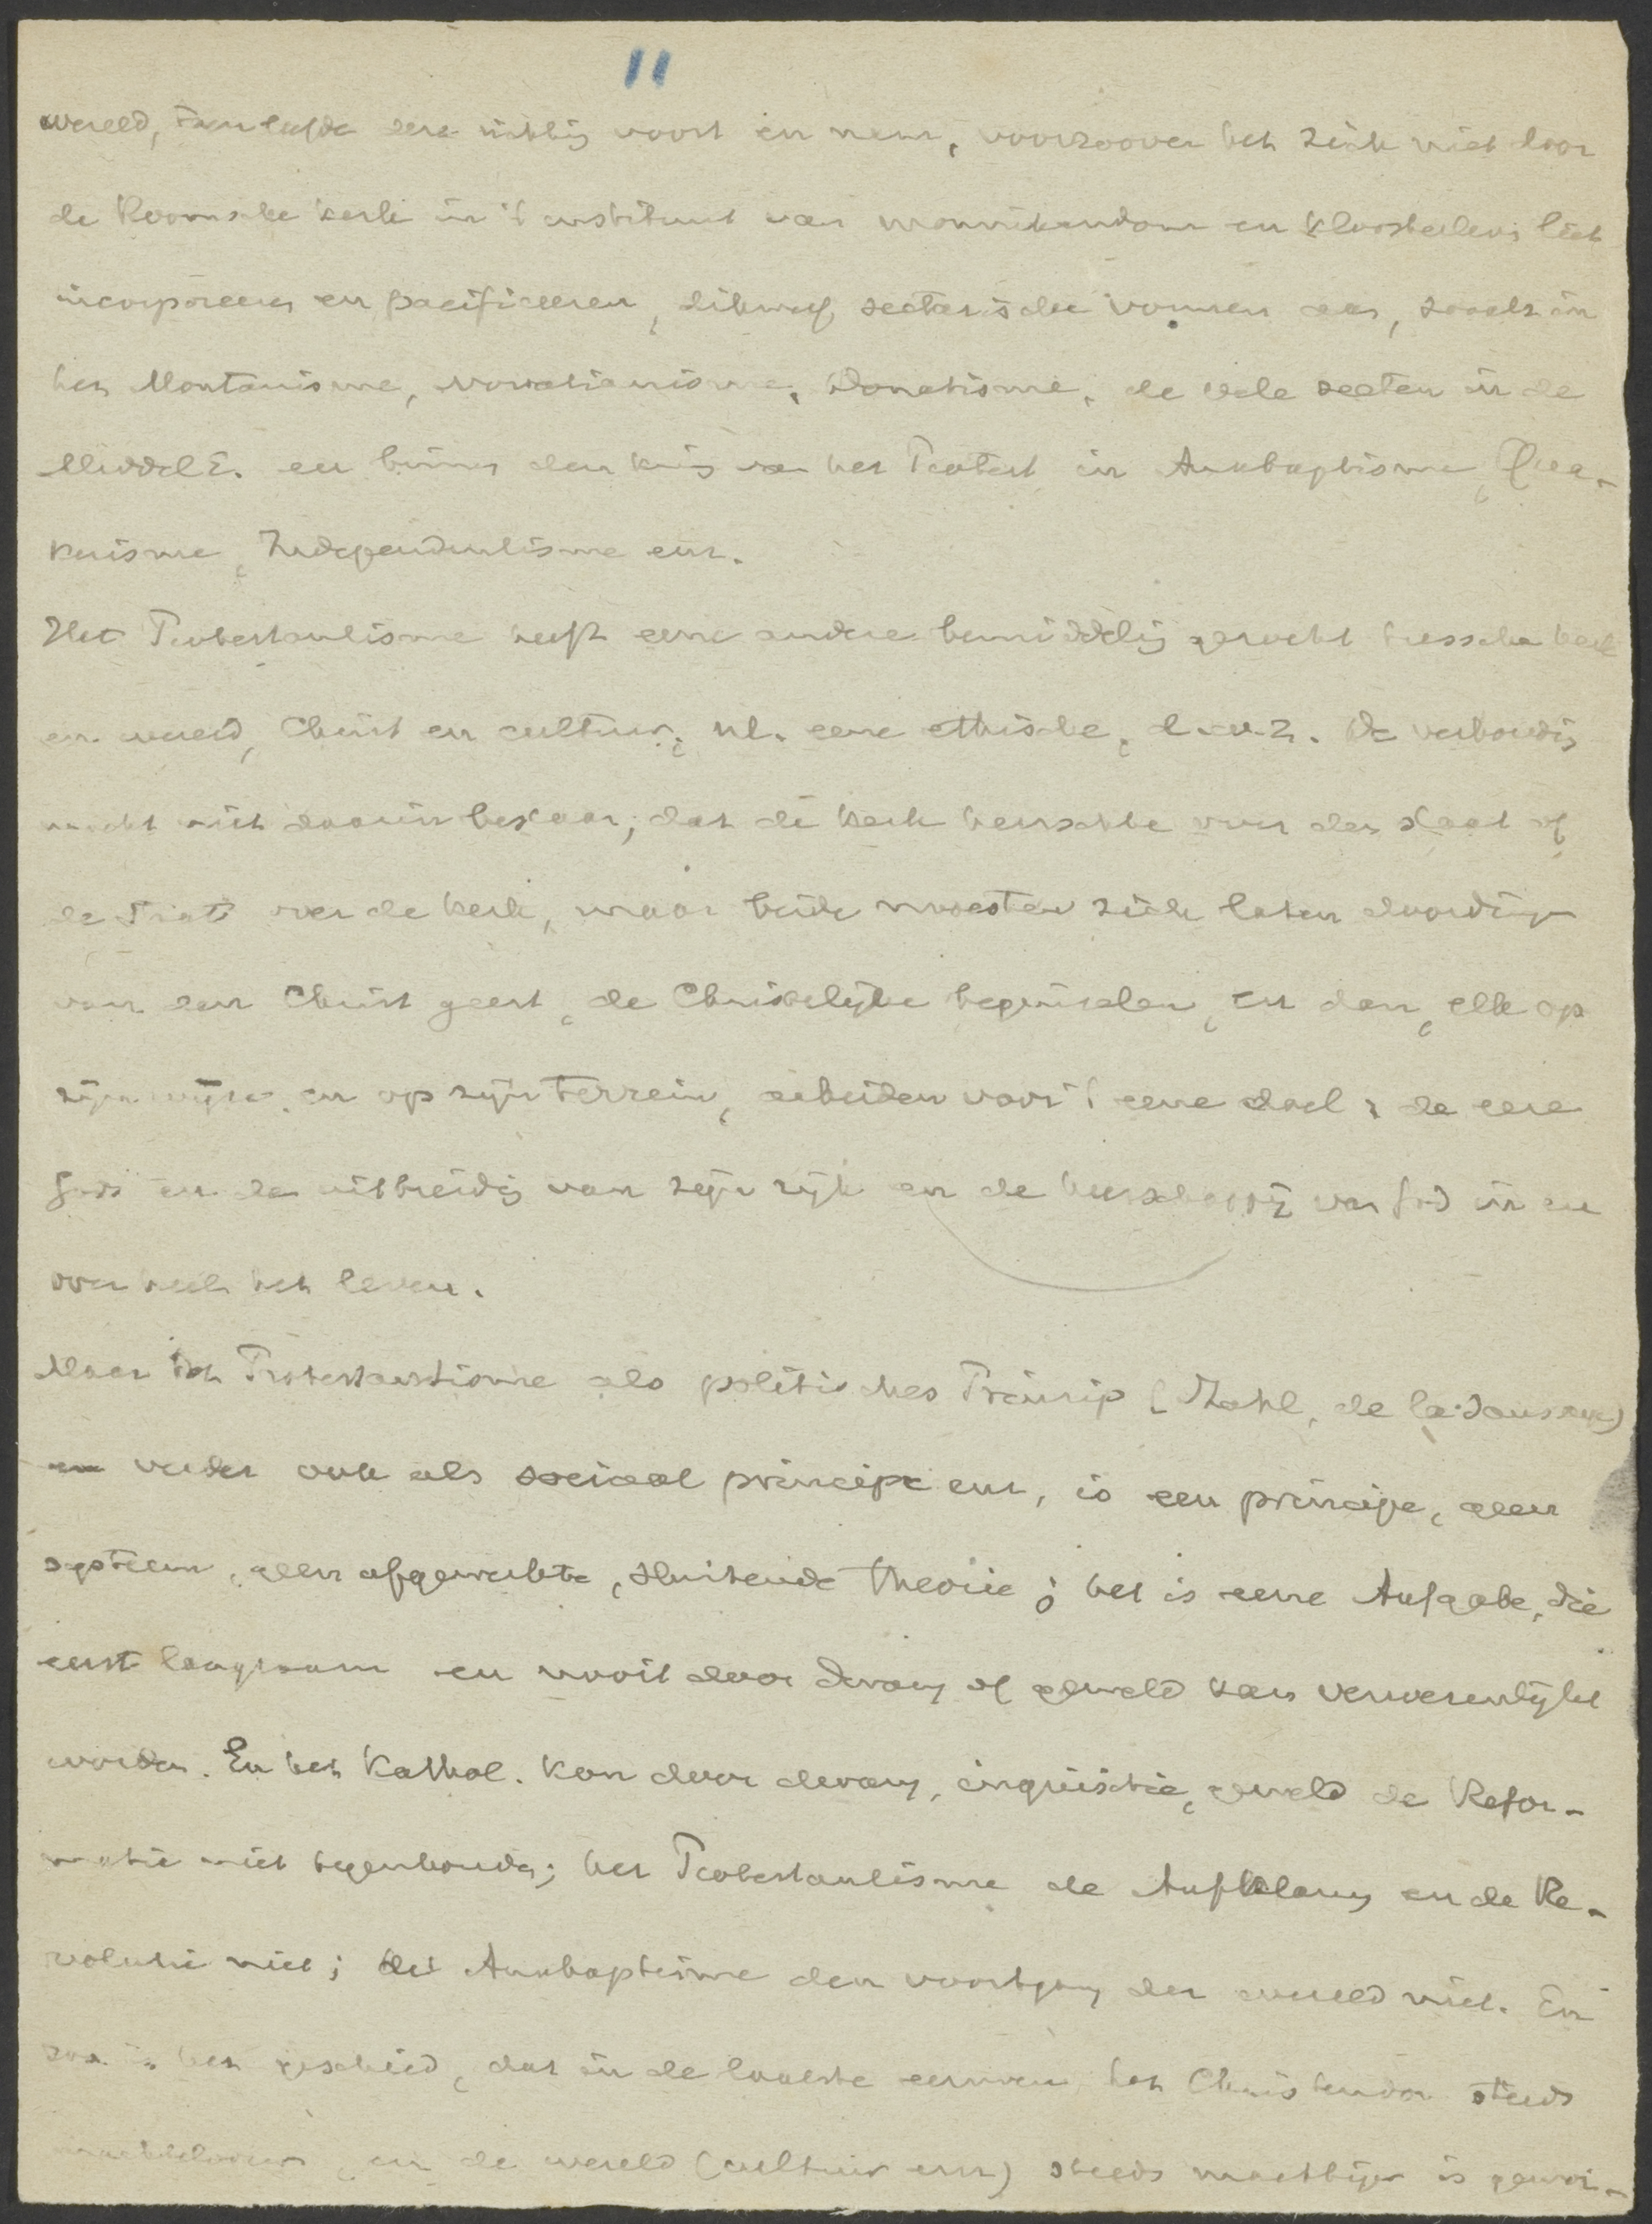 11
wereld, dan leefde deze richting voort en nam, voorzoover het zich niet door
de Roomsche kerk in 't instituut van monnikendom en kloosterleven liet
incorporeeren en pacificeeren, dikwerf sectarische vormen aan, zooals in
het Montanisme, Novatianisme, Donatisme, de vele secten in de
MiddelE. en binnen den kring van het Protest. in Anabaptisme, Qua-
kerisme, Independentisme enz.
Het Protestantisme heeft eene andere bemiddeling gezocht tusschen kerk
en wereld, Christ. en cultuur, nl. eene ethische, d.w.z. de verhouding
mocht niet daarin bestaan, dat de kerk heerschte over den staat of
de staat over de kerk, maar beide moesten zich laten doordringen
van den Christ. geest, de Christelijke beginselen, en dan, elk op
zijn wijze en op zijn terrein, arbeiden voor 't eene doel: de eere
Gods en de uitbreiding van zijn rijk en de heerschappij van God in en
over heel het leven.
Maar dat Protestantisme als politisches Prinzip (Stahl, de la Saussaye)
en verder ook als sociaal principe enz, is een principe, geen
systeem, geen afgewerkte, sluitende theorie; het is eene Aufgabe, die
eerst langzaam en nooit door dwang of geweld kan verwezenlijkt
worden. En het Kathol. kon door dwang, inquisitie, geweld de Refor-
matie niet tegenhouden; het Protestantisme de Aufklärung en de Re-
volutie niet; het Anabaptisme den voortgang der wereld niet. En
zoo is het geschied, dat in de laatste eeuwen het Christendom steeds
machteloozer, en de wereld (cultuur enz) steeds machtiger is gewor-